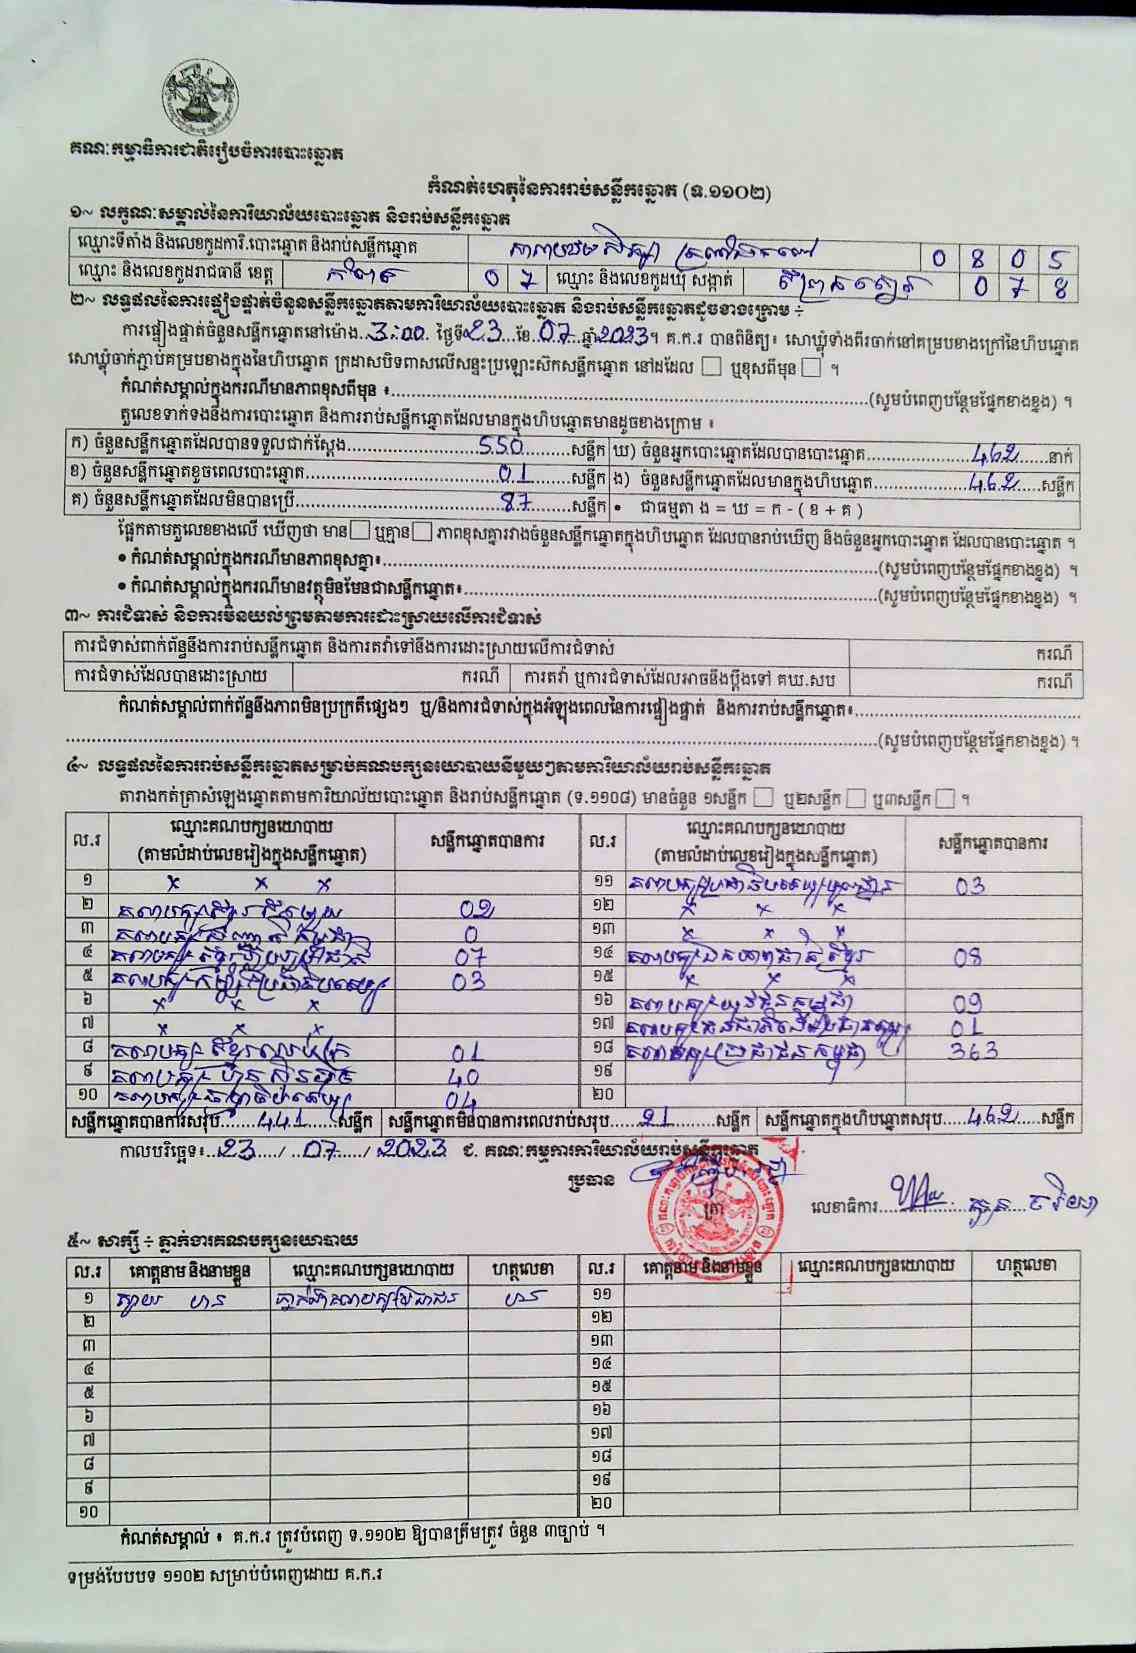 គណៈកម្មាធិការជាតិរៀបចំការបោះឆ្នោត
កំណត់ហេតុនៃការរាប់សន្លឹកឆ្នោត (ទ.១១០២)
១~ លក្ខណៈសម្គាល់នៃការិយាល័យបោះឆ្នោត និងរាប់សន្លឹកឆ្នោត
ឈ្មោះទីតាំង និងលេខកូដការិ.បោះឆ្នោត និងរាប់សន្លឹកឆ្នោត 0 8 0 5
ឈ្មោះ និងលេខកូដរាជធានី ខេត្ត កំពត 0 7 ឈ្មោះ និងលេខកូដឃុំ សង្កាត់ 0 7 8
២~ លទ្ធផលនៃការផ្ទៀងផ្ទាត់ចំនួនសន្លឹកឆ្នោតតាមការិយាល័យបោះឆ្នោត និងរាប់សន្លឹកឆ្នោតដូចខាងក្រោម ÷
ការផ្ទៀងផ្ទាត់ចំនួនសន្លឹកឆ្នោតនៅម៉ោង..3:00. ថ្ងៃទី 23 ខែ 07 ឆ្នាំ 2023។ គ.ក.រ បានពិនិត្យ៖ សោឃ្លុំទាំងពីរចាក់នៅគម្របខាងក្រៅនៃហិបឆ្នោត
សោឃ្លុំចាក់ភ្ជាប់គម្របខាងក្នុងនៃហិបឆ្នោត ក្រដាសបិទពាសលើសន្ទះប្រឡោះស៊កសន្លឹកឆ្នោត នៅដដែល ☐ ឬខុសពីមុន ☐ ។
កំណត់សម្គាល់ក្នុងករណីមានភាពខុសពីមុន ៖........(សូមបំពេញបន្ថែមផ្នែកខាងខ្នង) ។
តួលេខទាក់ទងនឹងការបោះឆ្នោត និងការរាប់សន្លឹកឆ្នោតដែលមានក្នុងហិបឆ្នោតមានដូចខាងក្រោម ៖
ក) ចំនួនសន្លឹកឆ្នោតដែលបានទទួលជាក់ស្តែង......550......សន្លឹក ឃ) ចំនួនអ្នកបោះឆ្នោតដែលបានបោះឆ្នោត......462......នាក់
ខ) ចំនួនសន្លឹកឆ្នោតខូចពេលបោះឆ្នោត......01......សន្លឹក ង) ចំនួនសន្លឹកឆ្នោតដែលមានក្នុងហិបឆ្នោត......462......សន្លឹក
គ) ចំនួនសន្លឹកឆ្នោតដែលមិនបានប្រើ......87......សន្លឹក • ជាធម្មតា ង = ឃ = ក - ( ខ + គ )
ផ្អែកតាមតួលេខខាងលើ ឃើញថា មាន ☐ ឬគ្មាន ☐ ភាពខុសគ្នារវាងចំនួនសន្លឹកឆ្នោតក្នុងហិបឆ្នោត ដែលបានរាប់ឃើញ និងចំនួនអ្នកបោះឆ្នោត ដែលបានបោះឆ្នោត ។
• កំណត់សម្គាល់ក្នុងករណីមានភាពខុសគ្នា៖........(សូមបំពេញបន្ថែមផ្នែកខាងខ្នង) ។
• កំណត់សម្គាល់ក្នុងករណីមានវត្ថុមិនមែនជាសន្លឹកឆ្នោត៖........(សូមបំពេញបន្ថែមផ្នែកខាងខ្នង) ។
៣~ ការជំទាស់ និងការមិនយល់ព្រមតាមការដោះស្រាយលើការជំទាស់
ការជំទាស់ពាក់ព័ន្ធនឹងការរាប់សន្លឹកឆ្នោត និងការតវ៉ាទៅនឹងការដោះស្រាយលើការជំទាស់ ករណី
ការជំទាស់ដែលបានដោះស្រាយ ករណី ការតវ៉ា ឬការជំទាស់ដែលអាចនឹងប្តឹងទៅ គឃ.សប ករណី
កំណត់សម្គាល់ពាក់ព័ន្ធនឹងភាពមិនប្រក្រតីផ្សេងៗ ឬ/និងការជំទាស់ក្នុងអំឡុងពេលនៃការផ្ទៀងផ្ទាត់ និងការរាប់សន្លឹកឆ្នោត៖........
........(សូមបំពេញបន្ថែមផ្នែកខាងខ្នង) ។
៤~ លទ្ធផលនៃការរាប់សន្លឹកឆ្នោតសម្រាប់គណបក្សនយោបាយនីមួយៗតាមការិយាល័យរាប់សន្លឹកឆ្នោត
តារាងកត់ត្រាសំឡេងឆ្នោតតាមការិយាល័យបោះឆ្នោត និងរាប់សន្លឹកឆ្នោត (ទ.១១០៨) មានចំនួន ១សន្លឹក ☐ ឬ២សន្លឹក ☐ ឬ៣សន្លឹក ☐ ។
ល.រ ឈ្មោះគណបក្សនយោបាយ (តាមលំដាប់លេខរៀងក្នុងសន្លឹកឆ្នោត) សន្លឹកឆ្នោតបានការ ល.រ ឈ្មោះគណបក្សនយោបាយ (តាមលំដាប់លេខរៀងក្នុងសន្លឹកឆ្នោត) សន្លឹកឆ្នោតបានការ
១ x x x ១១ គណបក្សប្រជាធិបតេយ្យមូលដ្ឋាន 03
២ 02 ១២ x x x
៣ 0 ១៣ x x x
៤ គណបក្សខ្មែររួបរួមជាតិ 07 ១៤ គណបក្សឯកភាពជាតិខ្មែរ 08
៥ គណបក្សកម្លាំងប្រជាធិបតេយ្យ 03 ១៥ x x x
៦ x x x ១៦ គណបក្សយុវជនកម្ពុជា 09
៧ x x x ១៧ 01
៨ គណបក្ស 01 ១៨ គណបក្សប្រជាជនកម្ពុជា 363
៩ គណបក្សហ៊្វុនស៊ិនប៉ិច 40 ១៩
១០ 04 ២០
សន្លឹកឆ្នោតបានការសរុប......441......សន្លឹក សន្លឹកឆ្នោតមិនបានការពេលរាប់សរុប......21......សន្លឹក សន្លឹកឆ្នោតក្នុងហិបឆ្នោតសរុប......462......សន្លឹក
កាលបរិច្ឆេទ៖ 23 / 07 / 2023 ជ. គណៈកម្មការការិយាល័យរាប់សន្លឹកឆ្នោត
ប្រធាន
ត្រា
លេខាធិការ
៥~ សាក្សី ÷ ភ្នាក់ងារគណបក្សនយោបាយ
ល.រ គោត្តនាម និងនាមខ្លួន ឈ្មោះគណបក្សនយោបាយ ហត្ថលេខា ល.រ គោត្តនាម និងនាមខ្លួន ឈ្មោះគណបក្សនយោបាយ ហត្ថលេខា
១ ១១
២ ១២
៣ ១៣
៤ ១៤
៥ ១៥
៦ ១៦
៧ ១៧
៨ ១៨
៩ ១៩
១០ ២០
កំណត់សម្គាល់ ៖ គ.ក.រ ត្រូវបំពេញ ទ.១១០២ ឱ្យបានត្រឹមត្រូវ ចំនួន ៣ច្បាប់ ។
ទម្រង់បែបបទ ១១០២ សម្រាប់បំពេញដោយ គ.ក.រ